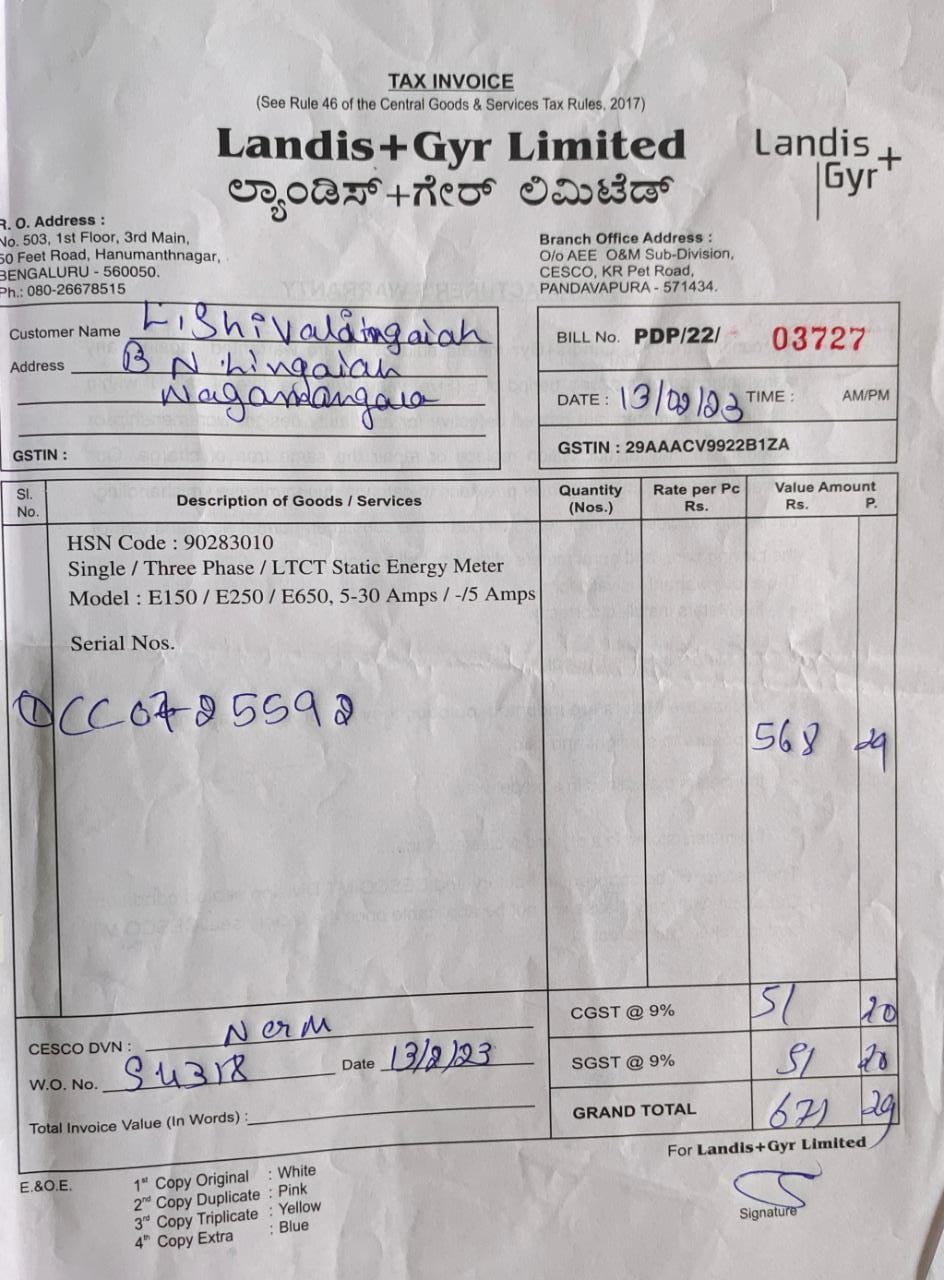 TAX INVOICE
(See Rule 46 of the Central Goods & Services Tax Rules, 2017)
Landis+Gyr Limited
ಲ್ಯಾಂಡಿಸ್+ಗೇರ್ ಲಿಮಿಟೆಡ್
Landis+
Gyr
R. O. Address :
No. 503, 1st Floor, 3rd Main,
50 Feet Road, Hanumanthnagar,
BENGALURU - 560050.
Ph.: 080-26678515
Branch Office Address :
O/o AEE O&M Sub-Division,
CESCO, KR Pet Road,
PANDAVAPURA - 571434.
Customer Name
Address B N Lingaiah
GSTIN :
BILL No. PDP/22/ 03727
DATE : 13/02/23 TIME : AM/PM
GSTIN : 29AAACV9922B1ZA
Sl. No. Description of Goods / Services Quantity (Nos.) Rate per Pc Rs. Value Amount Rs. P.
HSN Code : 90283010
Single / Three Phase / LTCT Static Energy Meter
Model : E150 / E250 / E650, 5-30 Amps / -/5 Amps
Serial Nos.
① 568 29
CGST @ 9% 51 20
SGST @ 9% 51 20
GRAND TOTAL 671 29
CESCO DVN :
W.O. No. Date 13/2/23
Total Invoice Value (In Words) :
For Landis+Gyr Limited
Signature
E.&O.E.
1st Copy Original : White
2nd Copy Duplicate : Pink
3rd Copy Triplicate : Yellow
4th Copy Extra : Blue